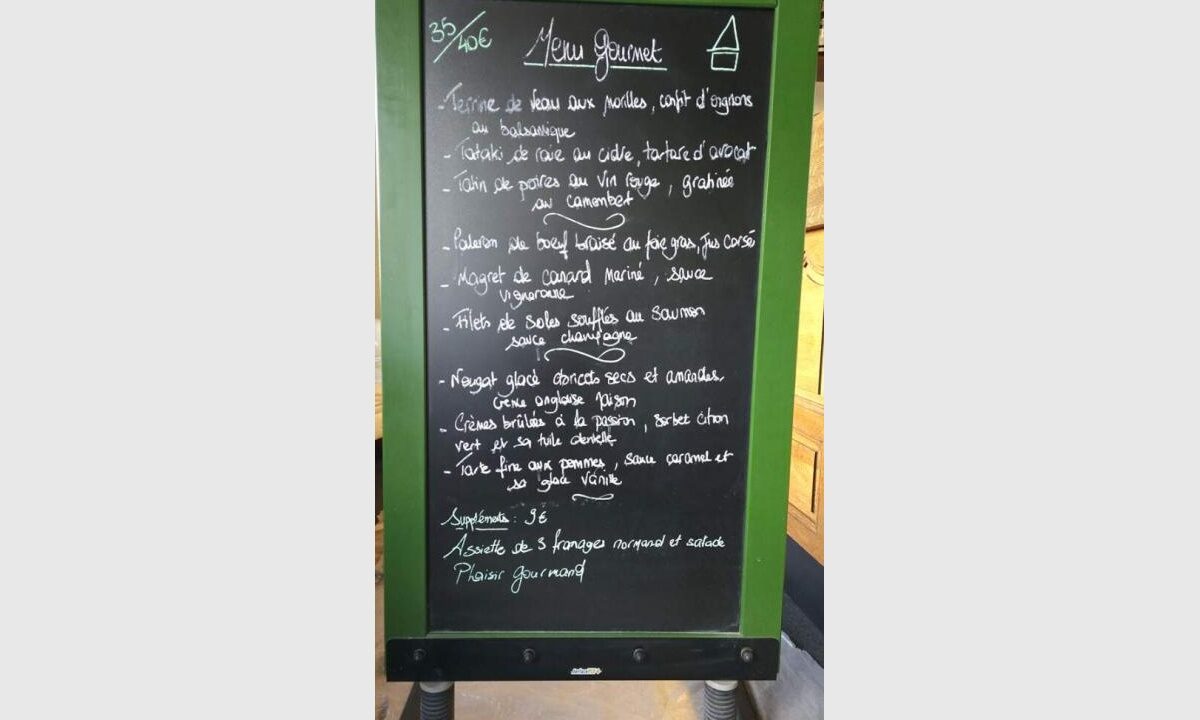 35/40€
Menu Gourmet
- Terrine de veau aux morilles, confit d'oignons
au balsamique
- Tataki de raie au cidre, tartare d'avocat
- Tatin de poires au vin rouge, gratinée
au camembert
- Paleron de boeuf braisé au foie gras, jus corsé
- Magret de canard mariné, sauce
vigneronne
- Filets de soles soufflés au saumon
sauce champagne
- Nougat glacé abricots secs et amandes,
crème anglaise
- Crèmes brûlées à la passion, sorbet citron
vert et sa tuile dentelle
- Tarte fine aux pommes, sauce caramel et
sa glace vanille
Suppléments : 9€
Assiette de 3 fromages normand et salade
Plaisir gourmand